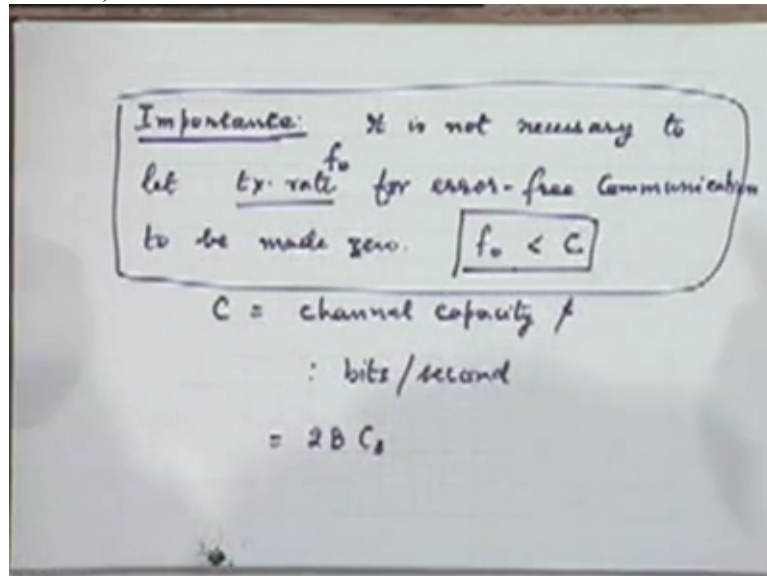 Importance: It is not necessary to
let tx. rate f₀ for error-free Communication
to be made zero. f₀ < C.
C = channel capacity
: bits/second
= 2B Cₛ